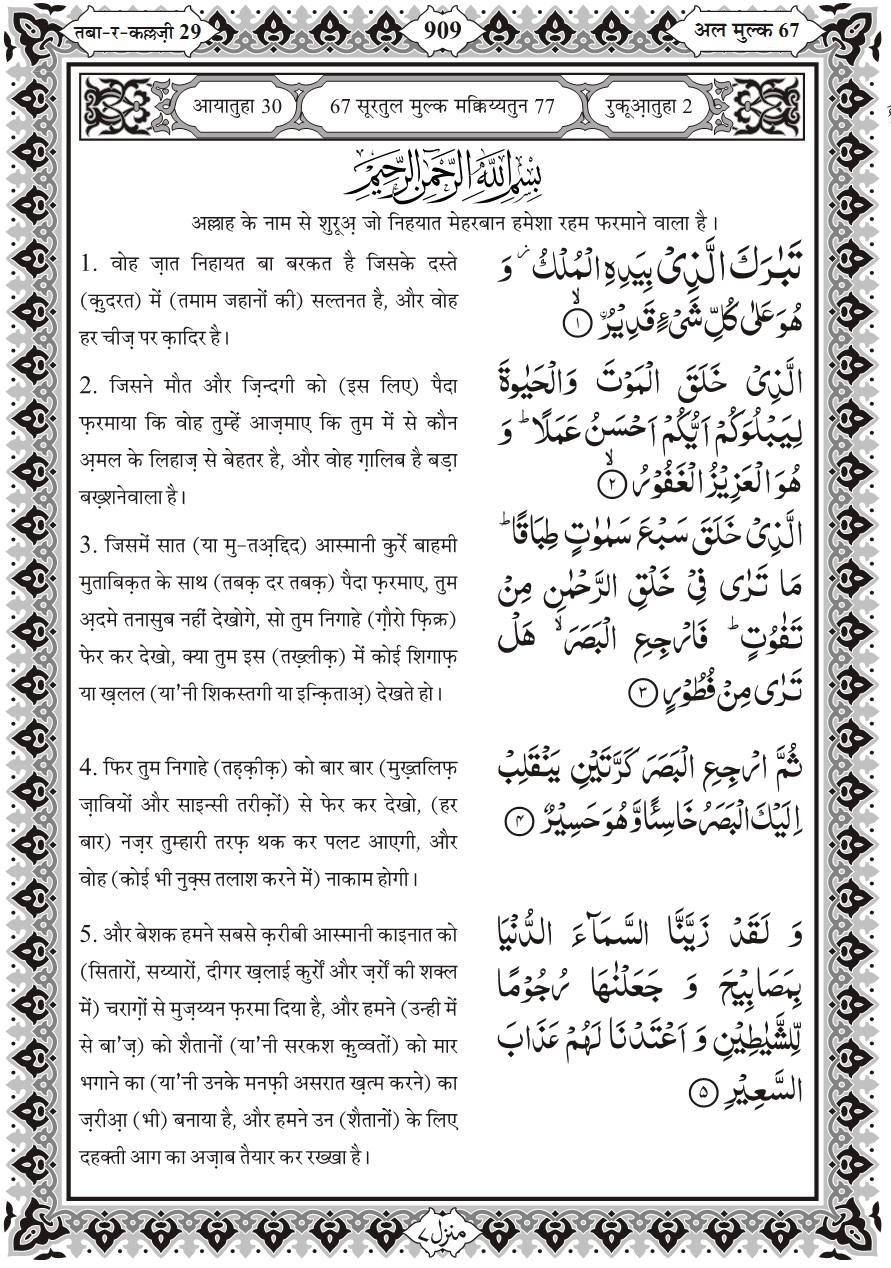 तबा-र-कल्लज़ी 29
909
अल मुल्क 67
आयातुहा 30
67 सूरतुल मुल्क मक्किय्यतुन 77
रुकूआ़तुहा 2
بِسْمِ اللّٰهِ الرَّحْمٰنِ الرَّحِيْمِ
अल्लाह के नाम से शुरूअ़ जो निहयात मेहरबान हमेशा रहम फरमाने वाला है।
1. वोह ज़ात निहायत बा बरकत है जिसके दस्ते
(क़ुदरत) में (तमाम जहानों की) सल्तनत है, और वोह
हर चीज़ पर क़ादिर है।
تَبٰرَكَ الَّذِيْ بِيَدِهِ الْمُلْكُ ۡ وَ
هُوَ عَلٰى كُلِّ شَيْءٍ قَدِيْرُۨ ۙ﴿۱﴾
2. जिसने मौत और ज़िन्दगी को (इस लिए) पैदा
फ़रमाया कि वोह तुम्हें आज़माए कि तुम में से कौन
अ़मल के लिहाज़ से बेहतर है, और वोह ग़ालिब है बड़ा
बख़्शनेवाला है।
الَّذِيْ خَلَقَ الْمَوْتَ وَالْحَيٰوةَ
لِيَبْلُوَكُمْ اَيُّكُمْ اَحْسَنُ عَمَلًا ؕ وَ
هُوَ الْعَزِيْزُ الْغَفُوْرُ ۙ﴿۲﴾
3. जिसमें सात (या मु-तअ़द्दिद) आस्मानी कुर्रे बाहमी
मुताबिक़त के साथ (तबक़ दर तबक़) पैदा फ़रमाए, तुम
अ़दमे तनासुब नहीं देखोगे, सो तुम निगाहे (ग़ौरो फ़िक्र)
फेर कर देखो, क्या तुम इस (तख़्लीक़) में कोई शिगाफ़
या ख़लल (या'नी शिकस्तगी या इन्क़िताअ़) देखते हो।
الَّذِيْ خَلَقَ سَبْعَ سَمٰوٰتٍ طِبَاقًا ؕ
مَا تَرٰى فِيْ خَلْقِ الرَّحْمٰنِ مِنْ
تَفٰوُتٍ ؕ فَارْجِعِ الْبَصَرَ ۙ هَلْ
تَرٰى مِنْ فُطُوْرٍ ﴿۳﴾
4. फिर तुम निगाहे (तहक़ीक़) को बार बार (मुख़्तलिफ़
ज़ावियों और साइन्सी तरीक़ों) से फेर कर देखो, (हर
बार) नज़र तुम्हारी तरफ़ थक कर पलट आएगी, और
वोह (कोई भी नुक़्स तलाश करने में) नाकाम होगी।
ثُمَّ ارْجِعِ الْبَصَرَ كَرَّتَيْنِ يَنْقَلِبْ
اِلَيْكَ الْبَصَرُ خَاسِئًا وَّهُوَ حَسِيْرٌ ﴿۴﴾
5. और बेशक हमने सबसे क़रीबी आस्मानी काइनात को
(सितारों, सय्यारों, दीगर ख़लाई कुर्रों और ज़र्रों की शक्ल
में) चराग़ों से मुज़य्यन फ़रमा दिया है, और हमने (उन्ही में
से बा'ज़) को शैतानों (या'नी सरकश क़ुव्वतों) को मार
भगाने का (या'नी उनके मनफ़ी असरात ख़त्म करने) का
ज़रीआ़ (भी) बनाया है, और हमने उन (शैतानों) के लिए
दहक्ती आग का अज़ाब तैयार कर रख्खा है।
وَ لَقَدْ زَيَّنَّا السَّمَآءَ الدُّنْيَا
بِمَصَابِيْحَ وَ جَعَلْنٰهَا رُجُوْمًا
لِّلشَّيٰطِيْنِ وَ اَعْتَدْنَا لَهُمْ عَذَابَ
السَّعِيْرِ ﴿۵﴾
منزل ۷